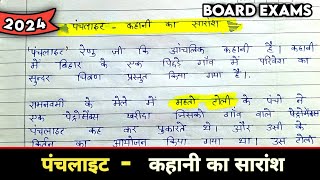 2024
BOARD EXAMS
पंचलाइट - कहानी का सारांश
'पंचलाइट' रेणु जी कि आंचलिक कहानी है। कहानी
में बिहार के एक पिछड़े गाँव में परिवेश का
सुन्दर चित्रण प्रस्तुत किया गया है।
रामनवमी के मेले में महतो टोली के पंचो ने
एक पेट्रोमेक्स खरीदा जिसको गाँव वाले पेट्रोमेक्स
पंचलाइट कह कर पुकारते थे। और उसी के
कीर्तन का आयोजन किया गया था। उस टोली
पंचलाइट - कहानी का सारांश